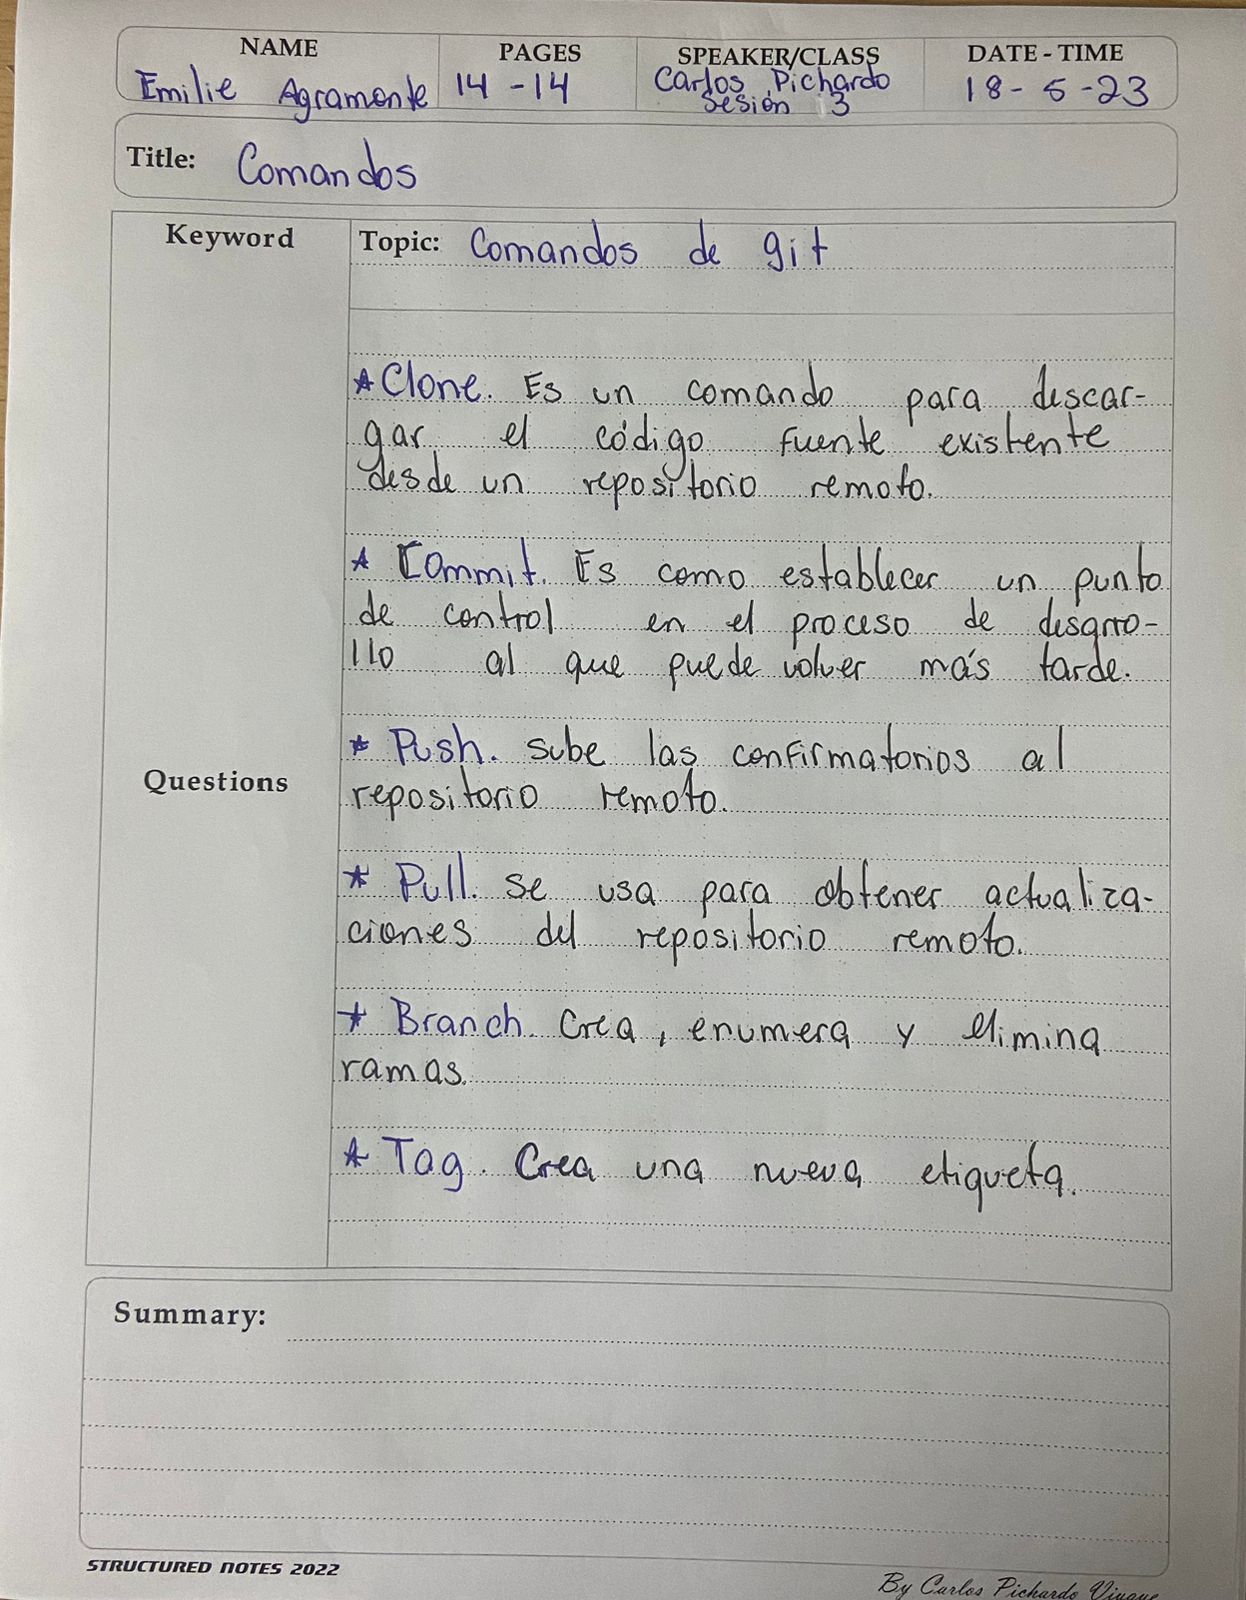 NAME PAGES SPEAKER/CLASS DATE - TIME
Emilie Agramonte 14 - 14 Carlos Pichardo 18 - 5 - 23
Sesión 3
Title: Comandos
Keyword Topic: Comandos de git
* Clone. Es un comando para descar-
gar el código fuente existente
desde un repositorio remoto.
* Commit. Es como establecer un punto
de control en el proceso de desarro-
llo al que puede volver más tarde.
* Push. sube las confirmatorios al
Questions
repositorio remoto.
* Pull. se usa para obtener actualiza-
ciones del repositorio remoto.
* Branch. Crea, enumera y elimina
ramas.
* Tag. Crea una nueva etiqueta.
Summary:
STRUCTURED NOTES 2022
By Carlos Pichardo